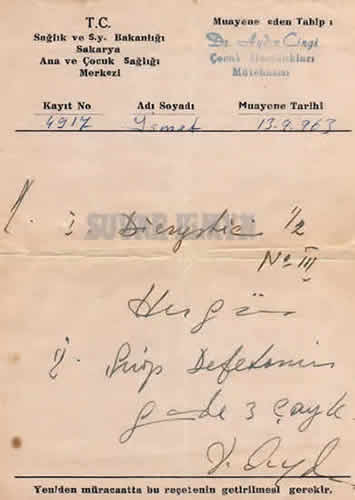 T.C.
Sağlık ve Sy. Bakanlığı
Sakarya
Ana ve Çocuk Sağlığı
Merkezi
Muayene eden Tabip :
Dr. Aydın Cingi
Çocuk Hastalıkları
Mütehassısı
Kayıt No Adı Soyadı Muayene Tarihi
4917 İsmet 13.9.963
I. 1/2
No III
Hergün
Günde 3 Çayk
Yeniden müracaatta bu reçetenin getirilmesi gerekir.